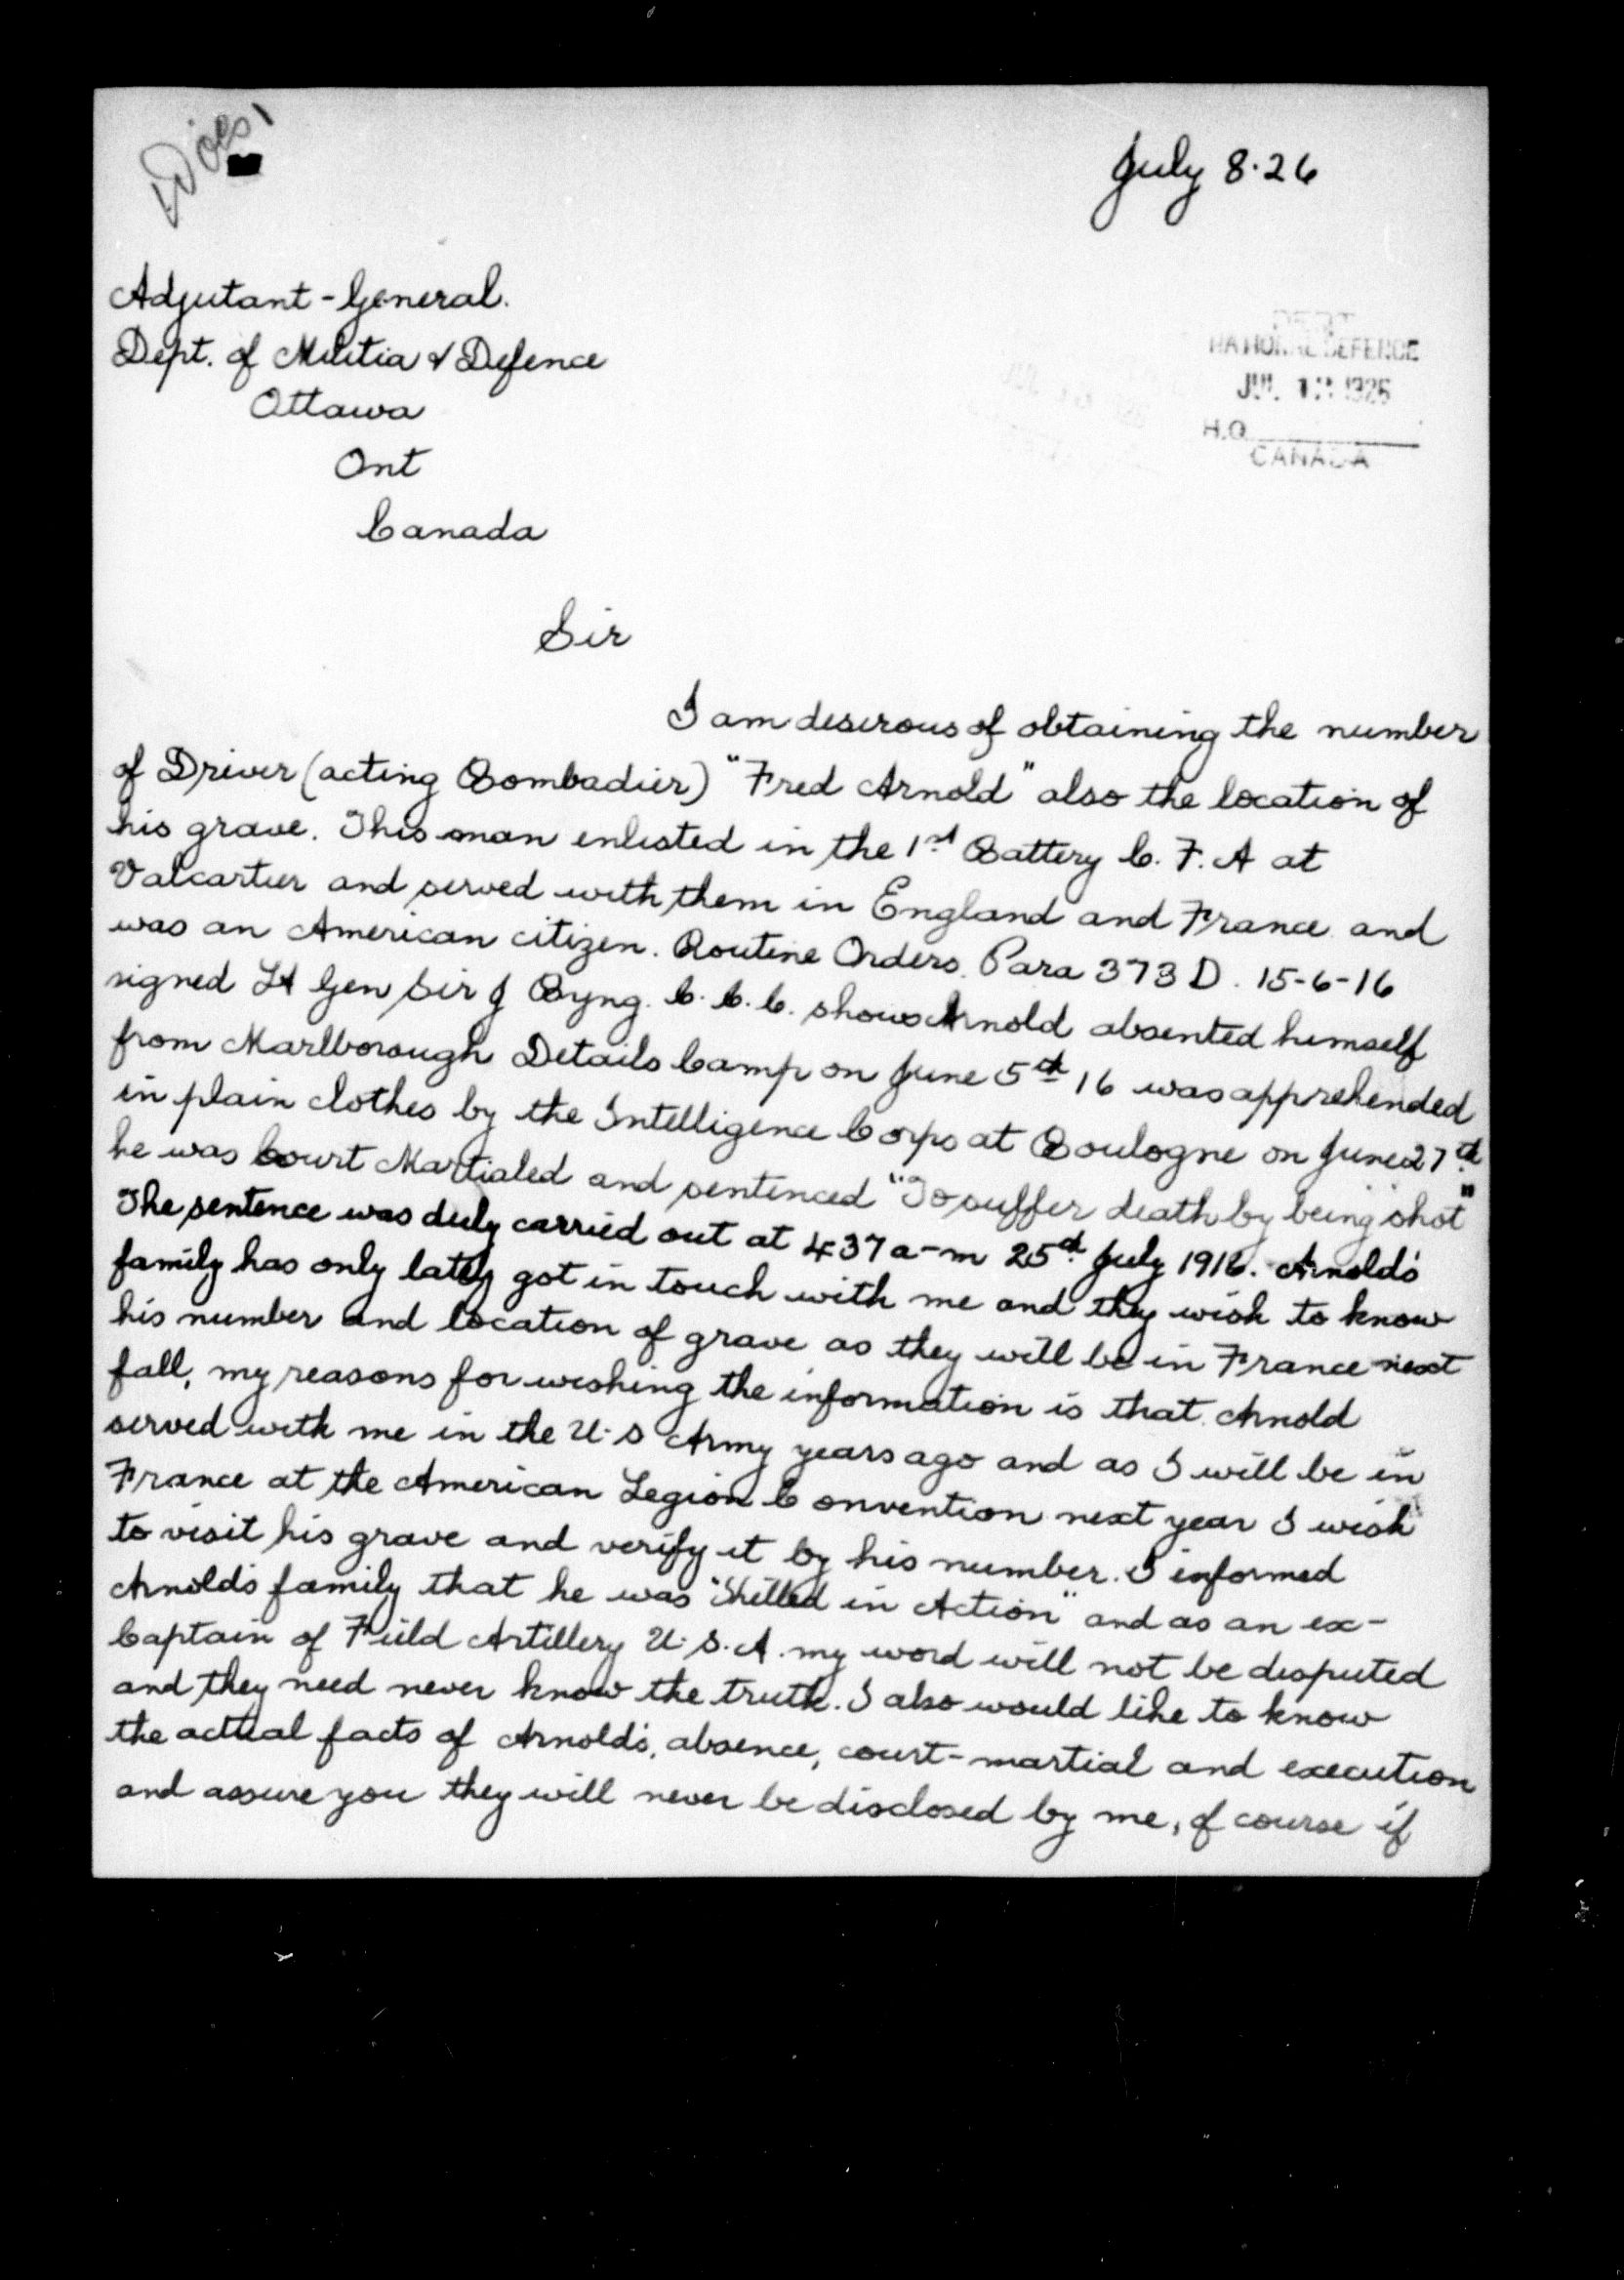 July 8·26
Adjutant-General.
Dept. of Militia & Defence
Ottawa
Ont
Canada
DEPT
NATIONAL DEFENCE
JUL 1926
H.Q.
CANADA
Sir
I am deserous of obtaining the number
of Driver (acting Bombadier) "Fred Arnold" also the location of
his grave. This man enlisted in the 1st Battery C. F. A at
Valcartier and served with them in England and France and
was an American citizen. Routine Orders. Para 373 D. 15-6-16
signed Lt Gen Sir J Byng. C. C. C. shows Arnold absented himself
from Marlborough Details Camp on June 5th 16 was apprehended
in plain clothes by the Intelligence Corps at Boulogne on June 27th
he was Court Martialed and sentenced "To suffer death by being shot"
The sentence was duly carried out at 437 a-m 25th July 1916. Arnold's
family has only lately got in touch with me and they wish to know
his number and location of grave as they will be in France next
fall, my reasons for wishing the information is that Arnold
served with me in the U·S Army years ago and as I will be in
France at the American Legion Convention next year I wish
to visit his grave and verify it by his number. I informed
Arnolds family that he was "Killed in Action" and as an ex-
Captain of Field Artillery U·S.A. my word will not be disputed
and they need never know the truth. I also would like to know
the actual facts of Arnold's, absence, court-martial and execution
and assure you they will never be disclosed by me, of course if